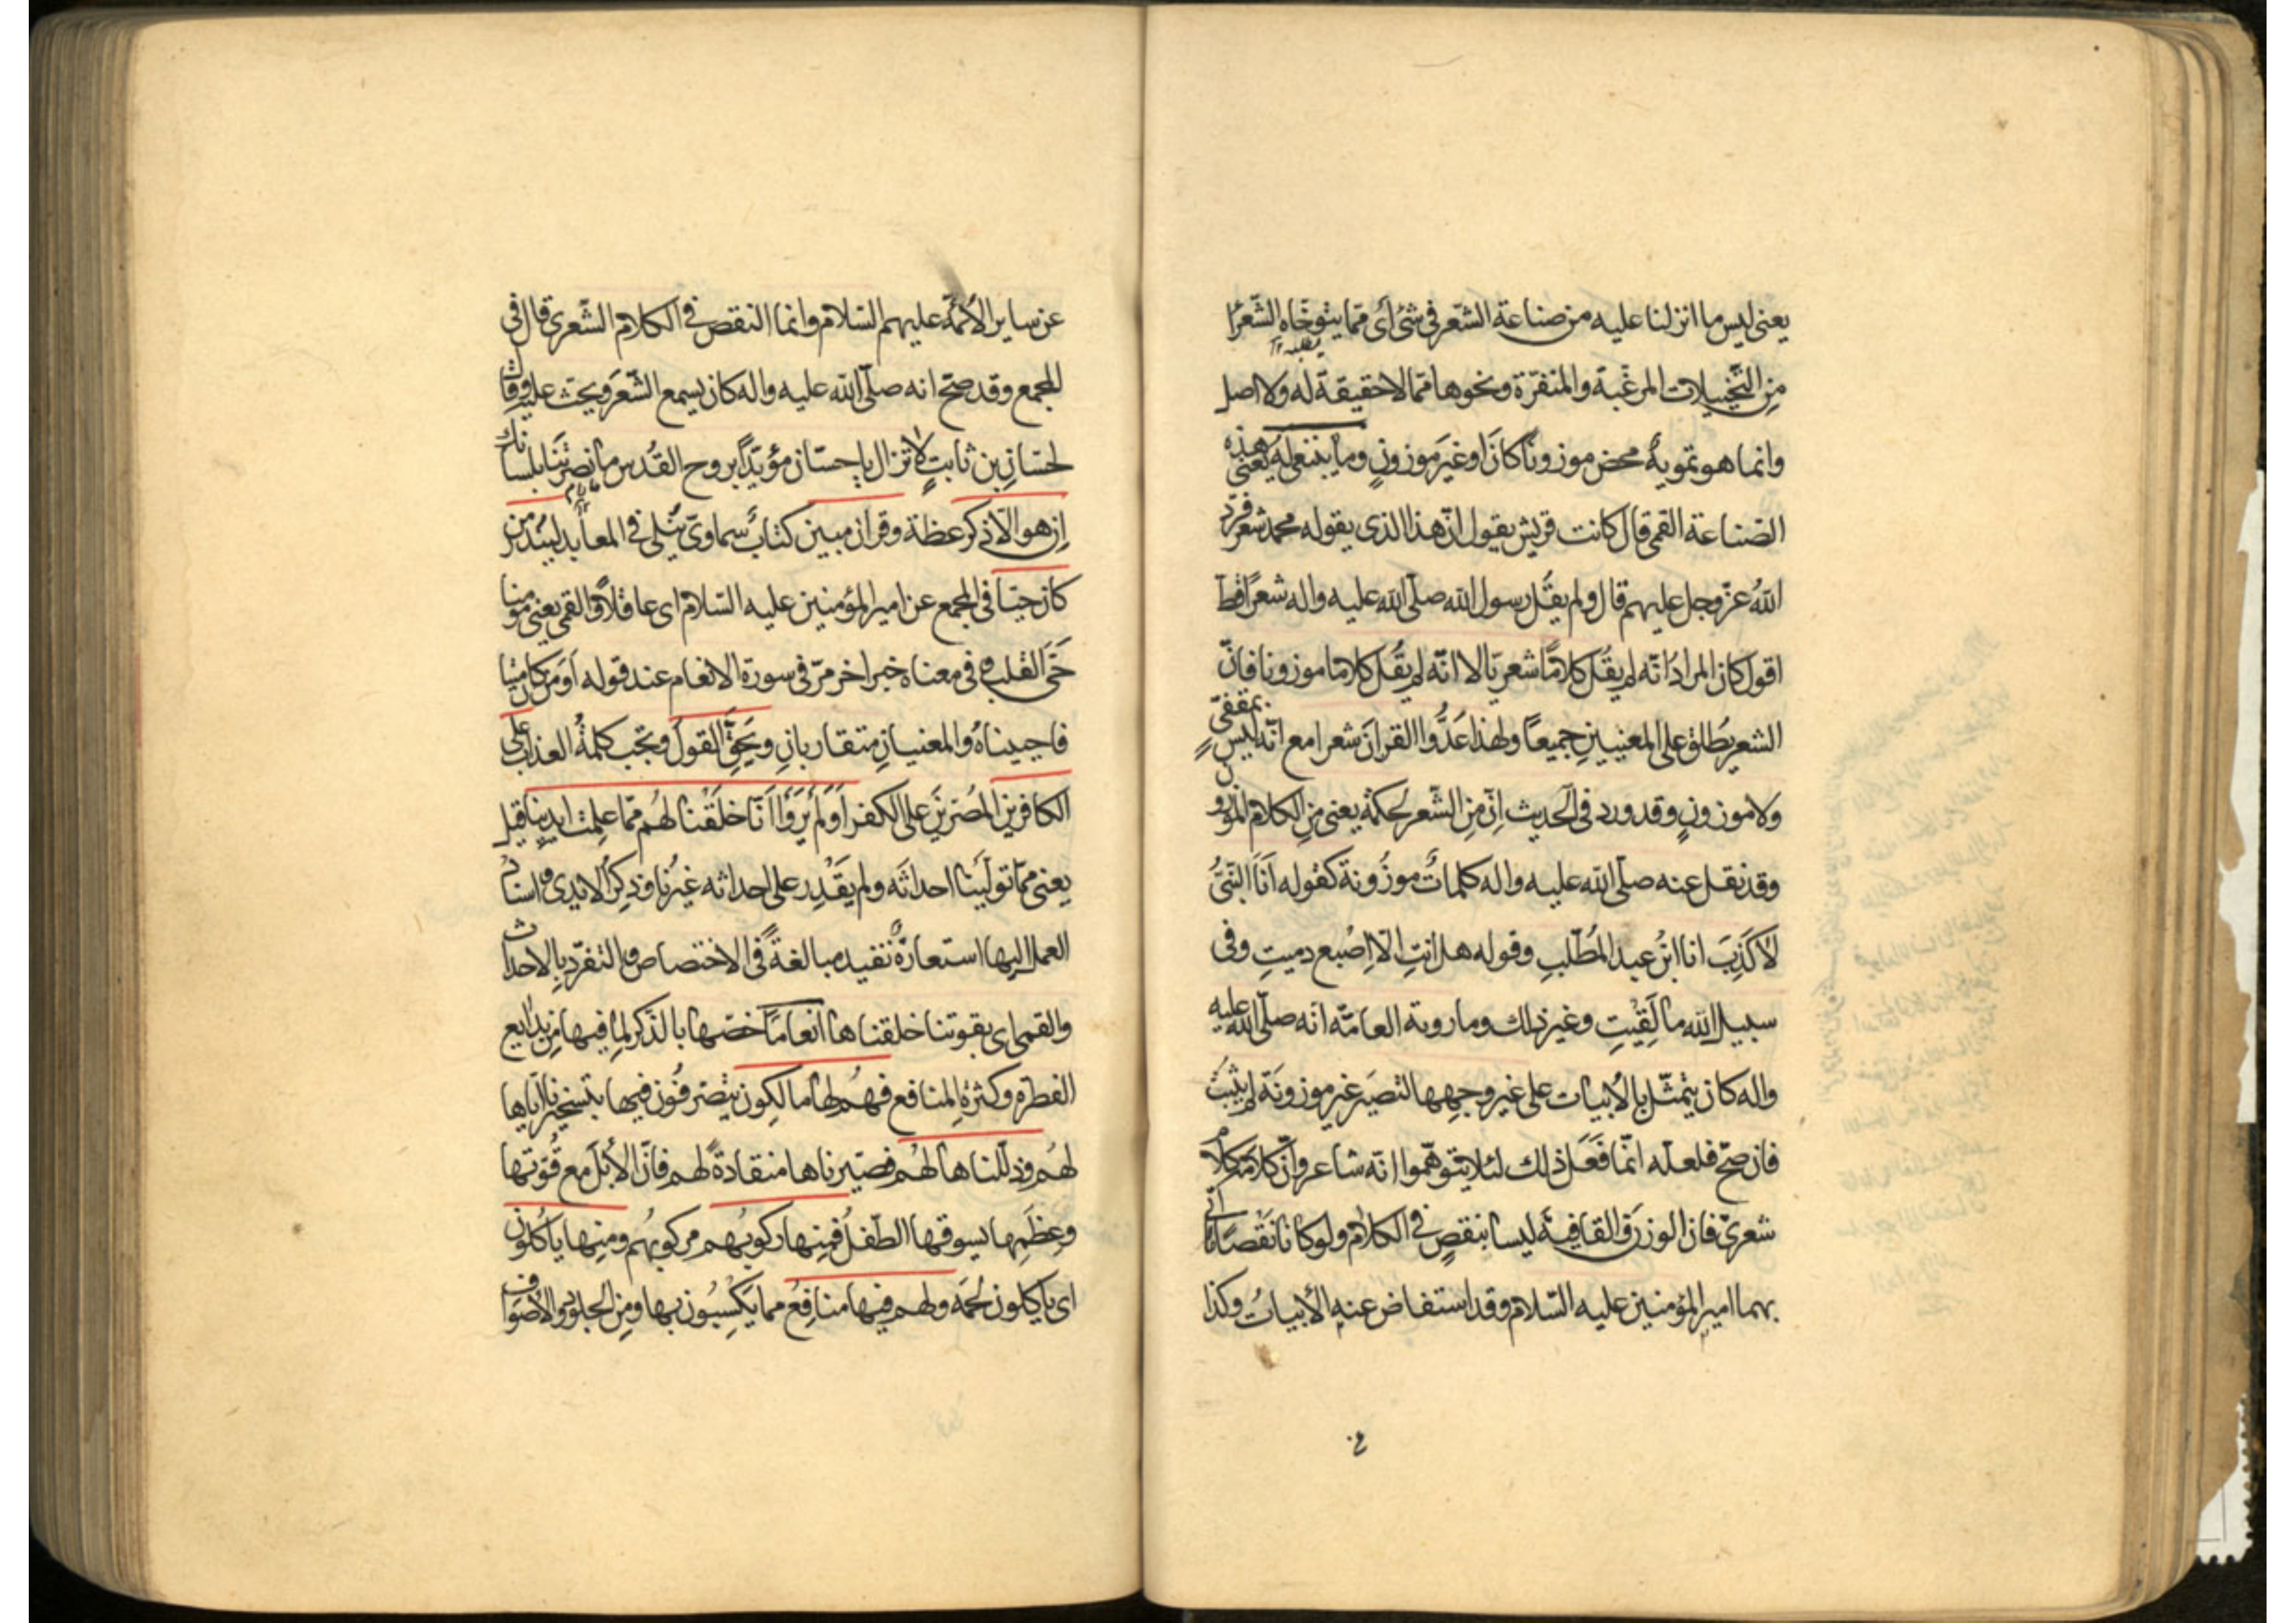 يعنى ليس ما انزلنا عليه من صناعة الشّعر فى شئ أى ممّا يتوخّاه الشّعرا
يطلبه
مِن التّخييلات المرغّبة والمنفّرة ونحوها ممّا لاحقيقة له ولا اصل
وانما هو تمويهٌ محض موزوناً كانَ او غيرَ موزونٍ وما ينبغى لَه يعنى هذه
الصّناعة القمى قال كانت قريش يقول انّ هذا الذى يقوله محمد شعر فردّ
اللهُ عزّ وجل عليهم قال ولم يقُل رسول الله صلّى الله عليه واله شعراً قطّ
اقول كان المرادُ انّه لم يقُل كلامًا شعريّا لا انّه لم يقُل كلاما موزونا فانّ
الشعر يُطلق على المعنيينِ جميعاً ولهذا عَدُّوا القرآنَ شعرا مع انّه ليس بمقفّىً
ولا موزونٍ وقد ورد فى الحديث اِنّ مِن الشّعر لحكمة يعنى مِن الكلام الموزون
وقد نقل عنه صلّى الله عليه واله كلماتٌ موزُونة كقوله اَنَا النّبىُّ
لاكَذِبَ انا ابنُ عبد المُطّلبِ وقوله هل انتِ الّا اِصْبع دميتِ وفى
سبيل الله ما لَقِيْتِ وغير ذلك وما روته العامّة انه صلّى الله عليه
واله كان يتمثّل بالأبيات على غير وجهها لتصيَر غير موزونَة لم يثبت
فان صحّ فلعلّه انّما فَعَل ذلك لئلا يتوهّموا انّه شاعر وانّ كلامَه كلامٌ
شعرىّ فان الوزن والقافِيةَ ليسا بنقصٍ فى الكلام ولو كانا نَقْصاً ما اتى
بهما امير المؤمنين عليه السّلام وقد استفاض عنه الأبياتُ وكذا
عن
عن ساير الأئمّة عليهم السّلام وانما النقص فى الكلام الشّعرى قال فى
المجمع وقد صحّ انه صلّى الله عليه واله كان يسمع الشّعرَ ويحثّ عليه وقال
لحسّانِ بن ثابتٍ لاتزال يا حسّان مؤيّداً بروح القُدس ما نصرتَنا بلسانك
اِن هو الّا ذكر عظة وقران مبين كتابٌ سماوىّ يُتلى فى المعابد ليُنذر من
كان حيّا فى المجمع عن امير المؤمنين عليه السّلام اى عاقلاً والقمى يعنى مؤمنا
حَىّ القلب وفى معناه خبرا خر مرّ فى سورة الانعام عند قوله اَوَ مَن كان ميتا
فاحييناهُ والمعنيانِ متقاربانِ ويَحِقَّ القولُ وتجب كلمةُ العذاب على
الكافرين المُصرّينَ على الكفر اَوَلَم يَرَوْا اَنّا خلَقْنا لهُم ممّا عمِلت ايدينا قيل
يعنى ممّا تولّيْنا احداثَه ولم يَقْدِر على احداثه غيرُنا وذِكرُ الايدى واسنادُ
العمل اليها استعارةٌ تفيد مبالغةً فى الاختصاص والتفرّد بالاحداث
والقمى اى بقوتنا خلقناها انعاماً خصّها بالذّكر لِما فيها مِن بدايع
الفطره وكثرة المنافع فهُم لها مالكون يتصرّفُون فيها بتسخيرنا ايّاها
لهُم وذلّلناها لهُم فصَيّرناها منقادةً لهم فانّ الأبلَ مع قُوّتها
وعِظَمِها يسوقها الطّفلُ فمِنها ركوبُهم مركوبُهُم ومنها ياكُلون
اى ياكلون لحمَه ولهم فيها منافِعُ مما يَكْسِبُون بها ومِن الجلود والأصوافِ